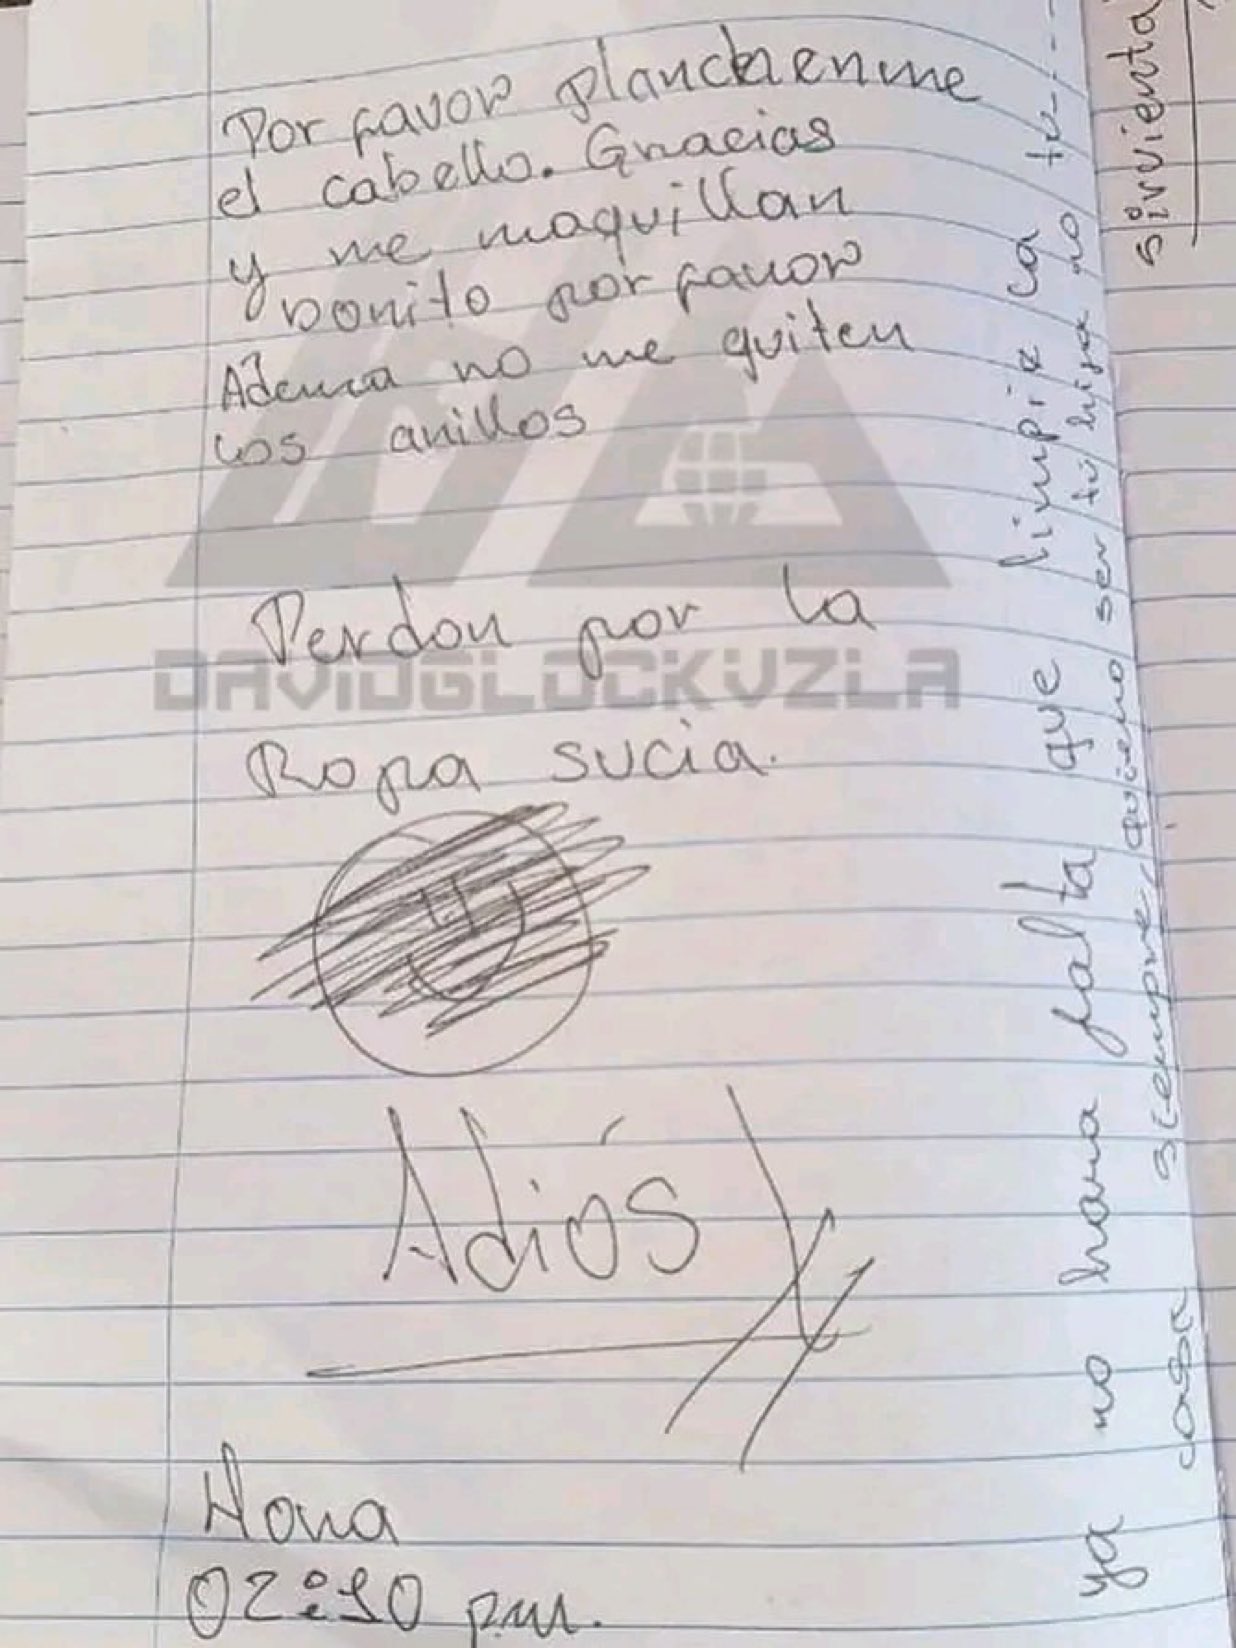 Por favor planchenme
el cabello. Gracias
y me maquillan
bonito por favor
Ademas no me quiten
los anillos
Perdon por la
Ropa sucia.
DAVIDGLOCKVZLA
Adiós
Hora
02:10 pm.
ya no hara falta que limpie la
casa siempre, quiero ser tu hija no tu
sirvienta